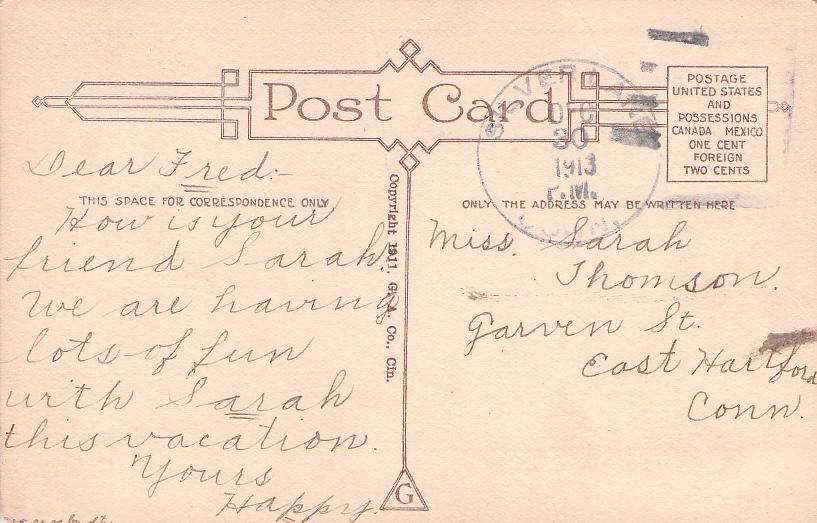 Post Card
POSTAGE
UNITED STATES
AND
POSSESSIONS
CANADA MEXICO
ONE CENT
FOREIGN
TWO CENTS
DEC
30
1913
P.M.
CONN.
THIS SPACE FOR CORRESPONDENCE ONLY
ONLY THE ADDRESS MAY BE WRITTEN HERE
Dear Fred:-
How is your
friend Sarah.
We are having
lots of fun
with Sarah
this vacation.
Yours
Happy.
Copyright 1911, G. A. Co., Cin.
G
Miss. Sarah
Thomson.
Garven St.
East Hartford
Conn.